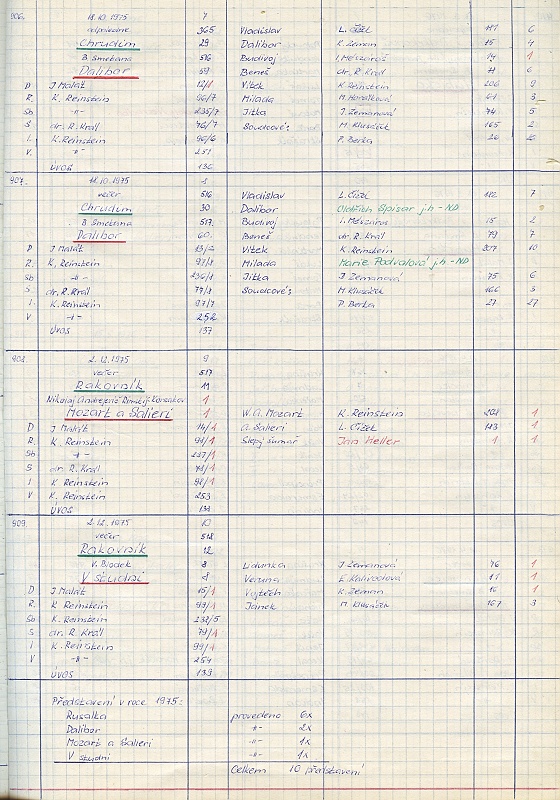 906. 18.10.1975 7
odpoledne 365 Vladislav L. Čížel 181 6
Chrudim 29 Dalibor K. Zeman 15 4
B. Smetana 516 Budivoj I. Mészaroš 14 1
Dalibor 59 Beneš dr. R. Král 71 6
D J. Malát 12/1 Vítek K. Reinstein 206 9
R. K. Reinstein 96/7 Milada M. Horáková 61 3
Sb -"- 235/7 Jitka J. Zemanová 74 5
S dr. R. Král 76/7 Soudcové: M. Klusáček 165 2
I. K. Reinstein 96/6 P. Berka 26 26
V. -"- 251
ÚVOS 136
907. 18.10.1975 8
večer 516 Vladislav L. Čížel 182 7
Chrudim 30 Dalibor Oldřich Spisar j.h - ND
B. Smetana 517 Budivoj I. Mészaros 15 2
Dalibor 60 Beneš dr. R. Král 79 7
D J. Malát 13/2 Vítek K. Reinstein 207 10
R. K. Reinstein 97/8 Milada Marie Podvalová j.h - ND
Sb -"- 236/8 Jitka J. Zemanová 75 6
S dr. R. Král 77/8 Soudcové: M. Klusáček 166 3
I K. Reinstein 97/7 P. Berka 27 27
V -"- 252
ÚVOS 137
908. 2.12.1975 9
večer 517
Rakovník 11
Nikolaj Andrejevič Rimskij-Korsakov 1
Mozart a Salieri 1 W. A. Mozart K. Reinstein 208 1
D J. Malát 14/1 A. Salieri L. Čížek 183 1
R. K. Reinstein 98/1 Slepý šumař Jan Heller 1 1
Sb -"- 237/1
S dr. R. Král 78/1
I K. Reinstein 98/1
V K. Reinstein 253
ÚVOS 138
909. 2.12.1975 10
večer 518
Rakovník 12
V. Blodek 8 Lidunka J. Zemanová 76 1
V studni 8 Veruna E. Kalivodová 11 1
D J. Malát 15/1 Vojtěch K. Zeman 16 1
R. K. Reinstein 99/1 Janek M. Klusáček 167 3
Sb K. Reinstein 238/5
S dr. R. Král 79/1
I K. Reinstein 99/1
V -"- 254
ÚVOS 139
Představení v roce 1975:
Rusalka provedeno 6x
Dalibor -"- 2x
Mozart a Salieri -"- 1x
V studni -"- 1x
Celkem 10 představení